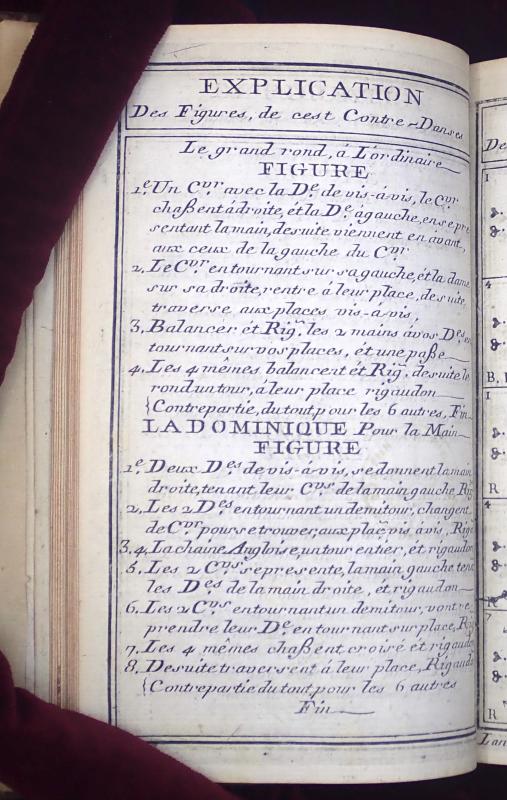 EXPLICATION
Des Figures, de cest Contre-Danses
Le grand rond, á L'ordinaire
FIGURE
1.e Un C.vr avec la D.e de vis-á-vis, le C.vr
chaßent á droite, ét la D.e á gauche, en se pré
sentant la main, de suite viennent en avant,
aux ceux de la gauche du C.vr
2, Le C.vr en tournant sur sa gauche, ét la dame
sur sa droite, rentre á leur place, de suite,
traverse aux places vis-a-vis,
3, Balancer ét Rig.n, les 2 mains á vos D.es en
tournant sur vos places, ét une paße
4, Les 4 mêmes balancent ét Rig.n, de suite le
rond un tour, á leur place rigaudon
{Contrepartie, du tout, pour les 6 autres, Fin
LA DOMINIQUE Pour la Main
FIGURE
1.e Deux D.es de vis-á-vis, se donnent la main
droite, tenant leur C.vs de la main gauche, Rig
2, Les 2 D.es en tournant un demi tour, changent
de C.vr pour se trouver, aux place, vis á vis, Rig
3, 4, La chaine Angloise, un tour entier, ét rigaudon
5, Les 2 C.vs se presente, la main gauche tena
les D.es de la main droite, ét rigaudon
6, Les 2 C.vs en tournant un demi tour, vont re
prendre leur D.e en tournant sur place, Rig
7, Les 4 mêmes chaßent croisé et rigaudon
8, De suite traversent á leur place, Rigaudo
{Contrepartie du tout, pour les 6 autres
Fin
De
1
4
B,
1
R
4
R
7
R
Lan